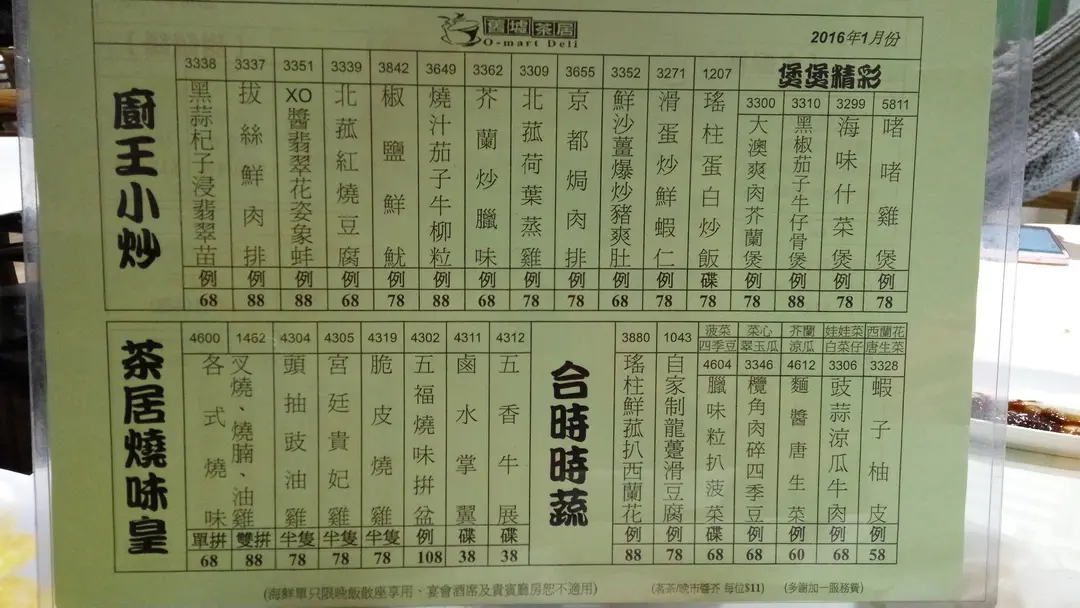 舊墟茶居
O-mart Deli
2016年1月份
廚王小炒
3338 黑蒜杞子浸翡翠苗 例 68
3337 拔絲鮮肉排 例 88
3351 XO醬翡翠花姿象蚌 例 88
3339 北菰紅燒豆腐 例 68
3842 椒鹽鮮魷 例 78
3649 燒汁茄子牛柳粒 例 88
3362 芥蘭炒臘味 例 68
3309 北菰荷葉蒸雞 例 78
3655 京都焗肉排 例 78
3352 鮮沙薑爆炒豬爽肚 例 68
3271 滑蛋炒鮮蝦仁 例 78
1207 瑤柱蛋白炒飯 碟 78
煲煲精彩
3300 大澳爽肉芥蘭煲 例 78
3310 黑椒茄子牛仔骨煲 例 88
3299 海味什菜煲 例 78
5811 啫啫雞煲 例 78
茶居燒味皇
4600 各式燒味 單拼 68
1462 叉燒、燒腩、油雞 雙拼 88
4304 頭抽豉油雞 半隻 78
4305 宮廷貴妃雞 半隻 78
4319 脆皮燒雞 半隻 78
4302 五福燒味拼盆 例 108
4311 鹵水掌翼 碟 38
4312 五香牛展 碟 38
合時時蔬
3880 瑤柱鮮菰扒西蘭花 例 88
1043 自家制龍躉滑豆腐 例 78
菠菜 菜心 芥蘭 娃娃菜 西蘭花
四季豆 翠玉瓜 涼瓜 白菜仔 唐生菜
4604 臘味粒扒菠菜 碟 68
3346 欖角肉碎四季豆 例 68
4612 麵醬唐生菜 例 60
3306 豉蒜涼瓜牛肉 例 68
3328 蝦子柚皮 例 58
(海鮮單只限晚飯散座享用、宴會酒席及貴賓廳房恕不適用)
(茗茶/晚市醬芥 每位$11)
(多謝加一服務費)